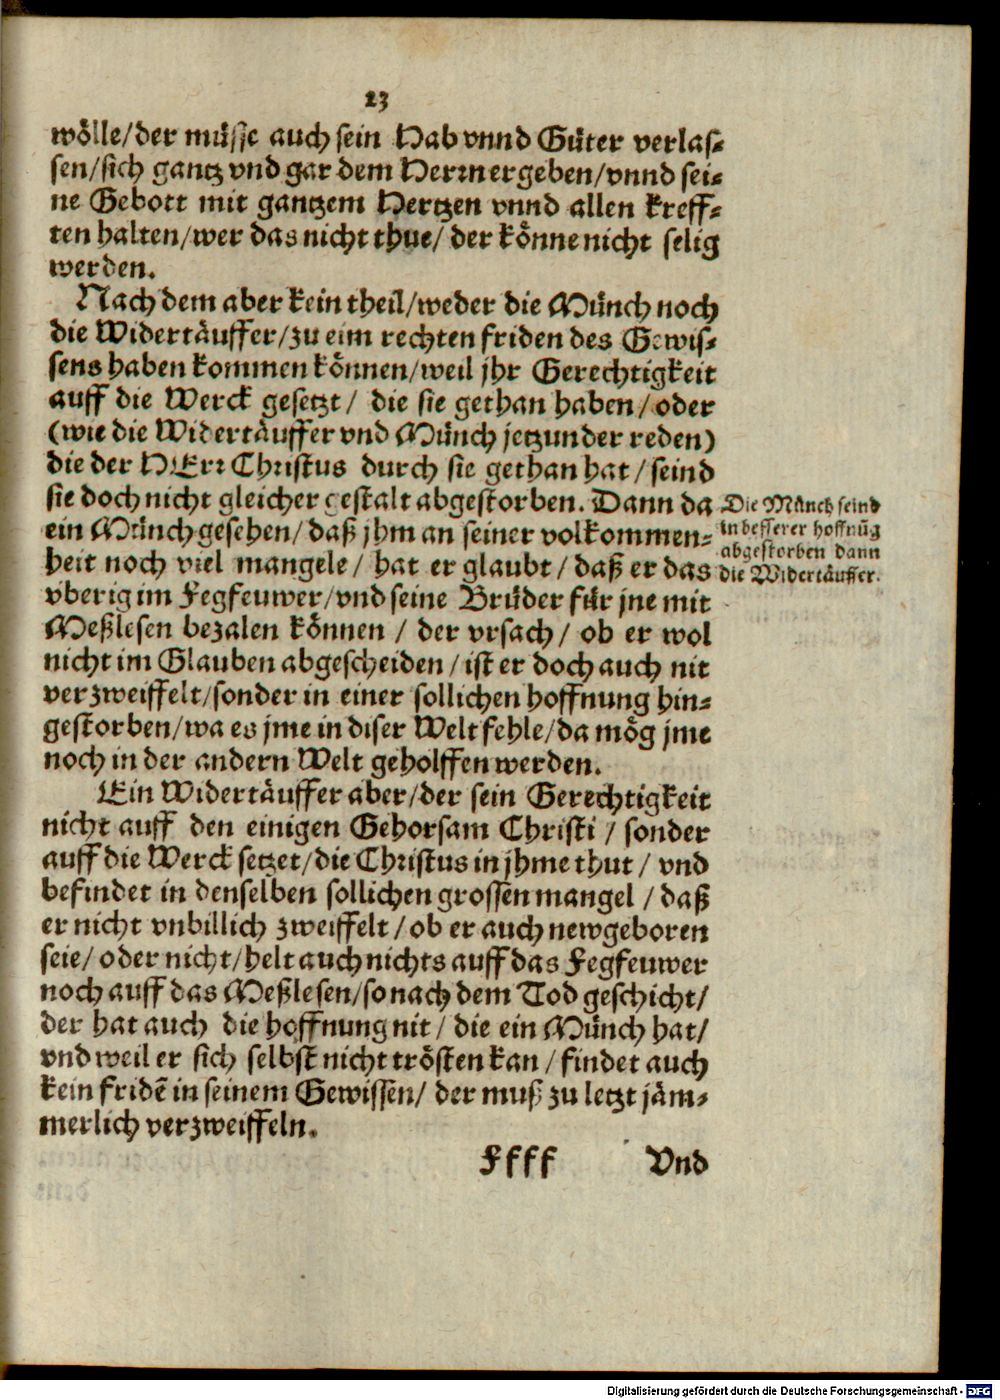 23
wölle/der müsse auch sein Hab vnnd Güter verlas-
sen/sich gantz vnd gar dem Herrn ergeben/vnnd sei-
ne Gebott mit gantzem Hertzen vnnd allen kreff-
ten halten/wer das nicht thue/ der könne nicht selig
werden.
Nach dem aber kein theil/weder die Münch noch
die Widertäuffer/zu eim rechten friden des Gewis-
sens haben kommen können/weil jhr Gerechtigkeit
auff die Werck gesetzt/ die sie gethan haben/ oder
(wie die Widertäuffer vnd Münch jetzunder reden)
die der HErr Christus durch sie gethan hat/ seind
sie doch nicht gleicher gestalt abgestorben. Dann da
ein Münch gesehen/ daß jhm an seiner volkommen-
heit noch viel mangele/ hat er glaubt/ daß er das
vberig im Fegfeuwer/vnd seine Brüder für jne mit
Meßlesen bezalen können / der vrsach/ ob er wol
nicht im Glauben abgescheiden/ist er doch auch nit
verzweiffelt/sonder in einer sollichen hoffnung hin-
gestorben/wa es jme in diser Welt fehle/da mög jme
noch in der andern Welt geholffen werden.
Die Münch seind
in besserer hoffnūg
abgestorben dann
die Widertäuffer.
Ein Widertäuffer aber/der sein Gerechtigkeit
nicht auff den einigen Gehorsam Christi / sonder
auff die Werck setzet/die Christus in jhme thut/ vnd
befindet in denselben sollichen grossen mangel / daß
er nicht vnbillich zweiffelt/ob er auch newgeboren
seie/ oder nicht/helt auch nichts auff das Fegfeuwer
noch auff das Meßlesen/so nach dem Tod geschicht/
der hat auch die hoffnung nit/ die ein Münch hat/
vnd weil er sich selbst nicht trösten kan / findet auch
kein fridē in seinem Gewissen/ der muß zu letzt jäm-
merlich verzweiffeln.
Ffff Vnd
Digitalisierung gefördert durch die Deutsche Forschungsgemeinschaft - DFG